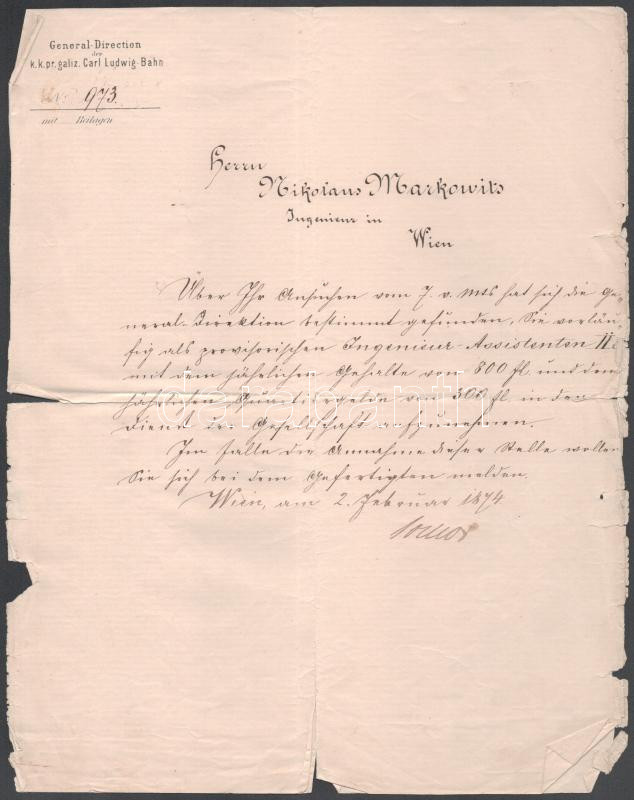 General-Direction
der
k. k. pr. galiz. Carl Ludwig-Bahn
No 973.
mit Beilagen
Herrn
Nikolaus Markowits
Ingenieur in
Wien
Über Ihr Ansuchen vom 7. v. Mts hat sich die Ge-
neral-Direktion bestimmt gefunden, Sie vorläu-
fig als provisorischen Ingenieur-Assistenten II
mit dem jährlichen Gehalte von 800 fl. und dem
jährlichen Quartiergelde von 300 fl. in den
Dienst der Gesellschaft aufzunehmen.
Im Falle der Annahme dieser Stelle wollen
Sie sich bei dem Gefertigten melden.
Wien, am 2. Februar 1874
darabanth